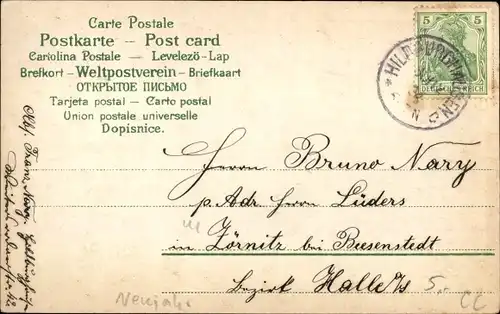 Carte Postale
Postkarte — Post card
Cartolina Postale — Levelezö-Lap
Brefkort - Weltpostverein - Briefkaart
ОТКРЫТОЕ ПИСЬМО
Tarjeta postal — Carto postal
Union postale universelle
Dopisnice.
5 5
DEUTSCHES REICH
Herrn Bruno Nary
p. Adr. Herrn Lüders
in Zörnitz bei Beesenstedt
Bezirk Halle a/s
5.-
Neujahr
Franz Nary